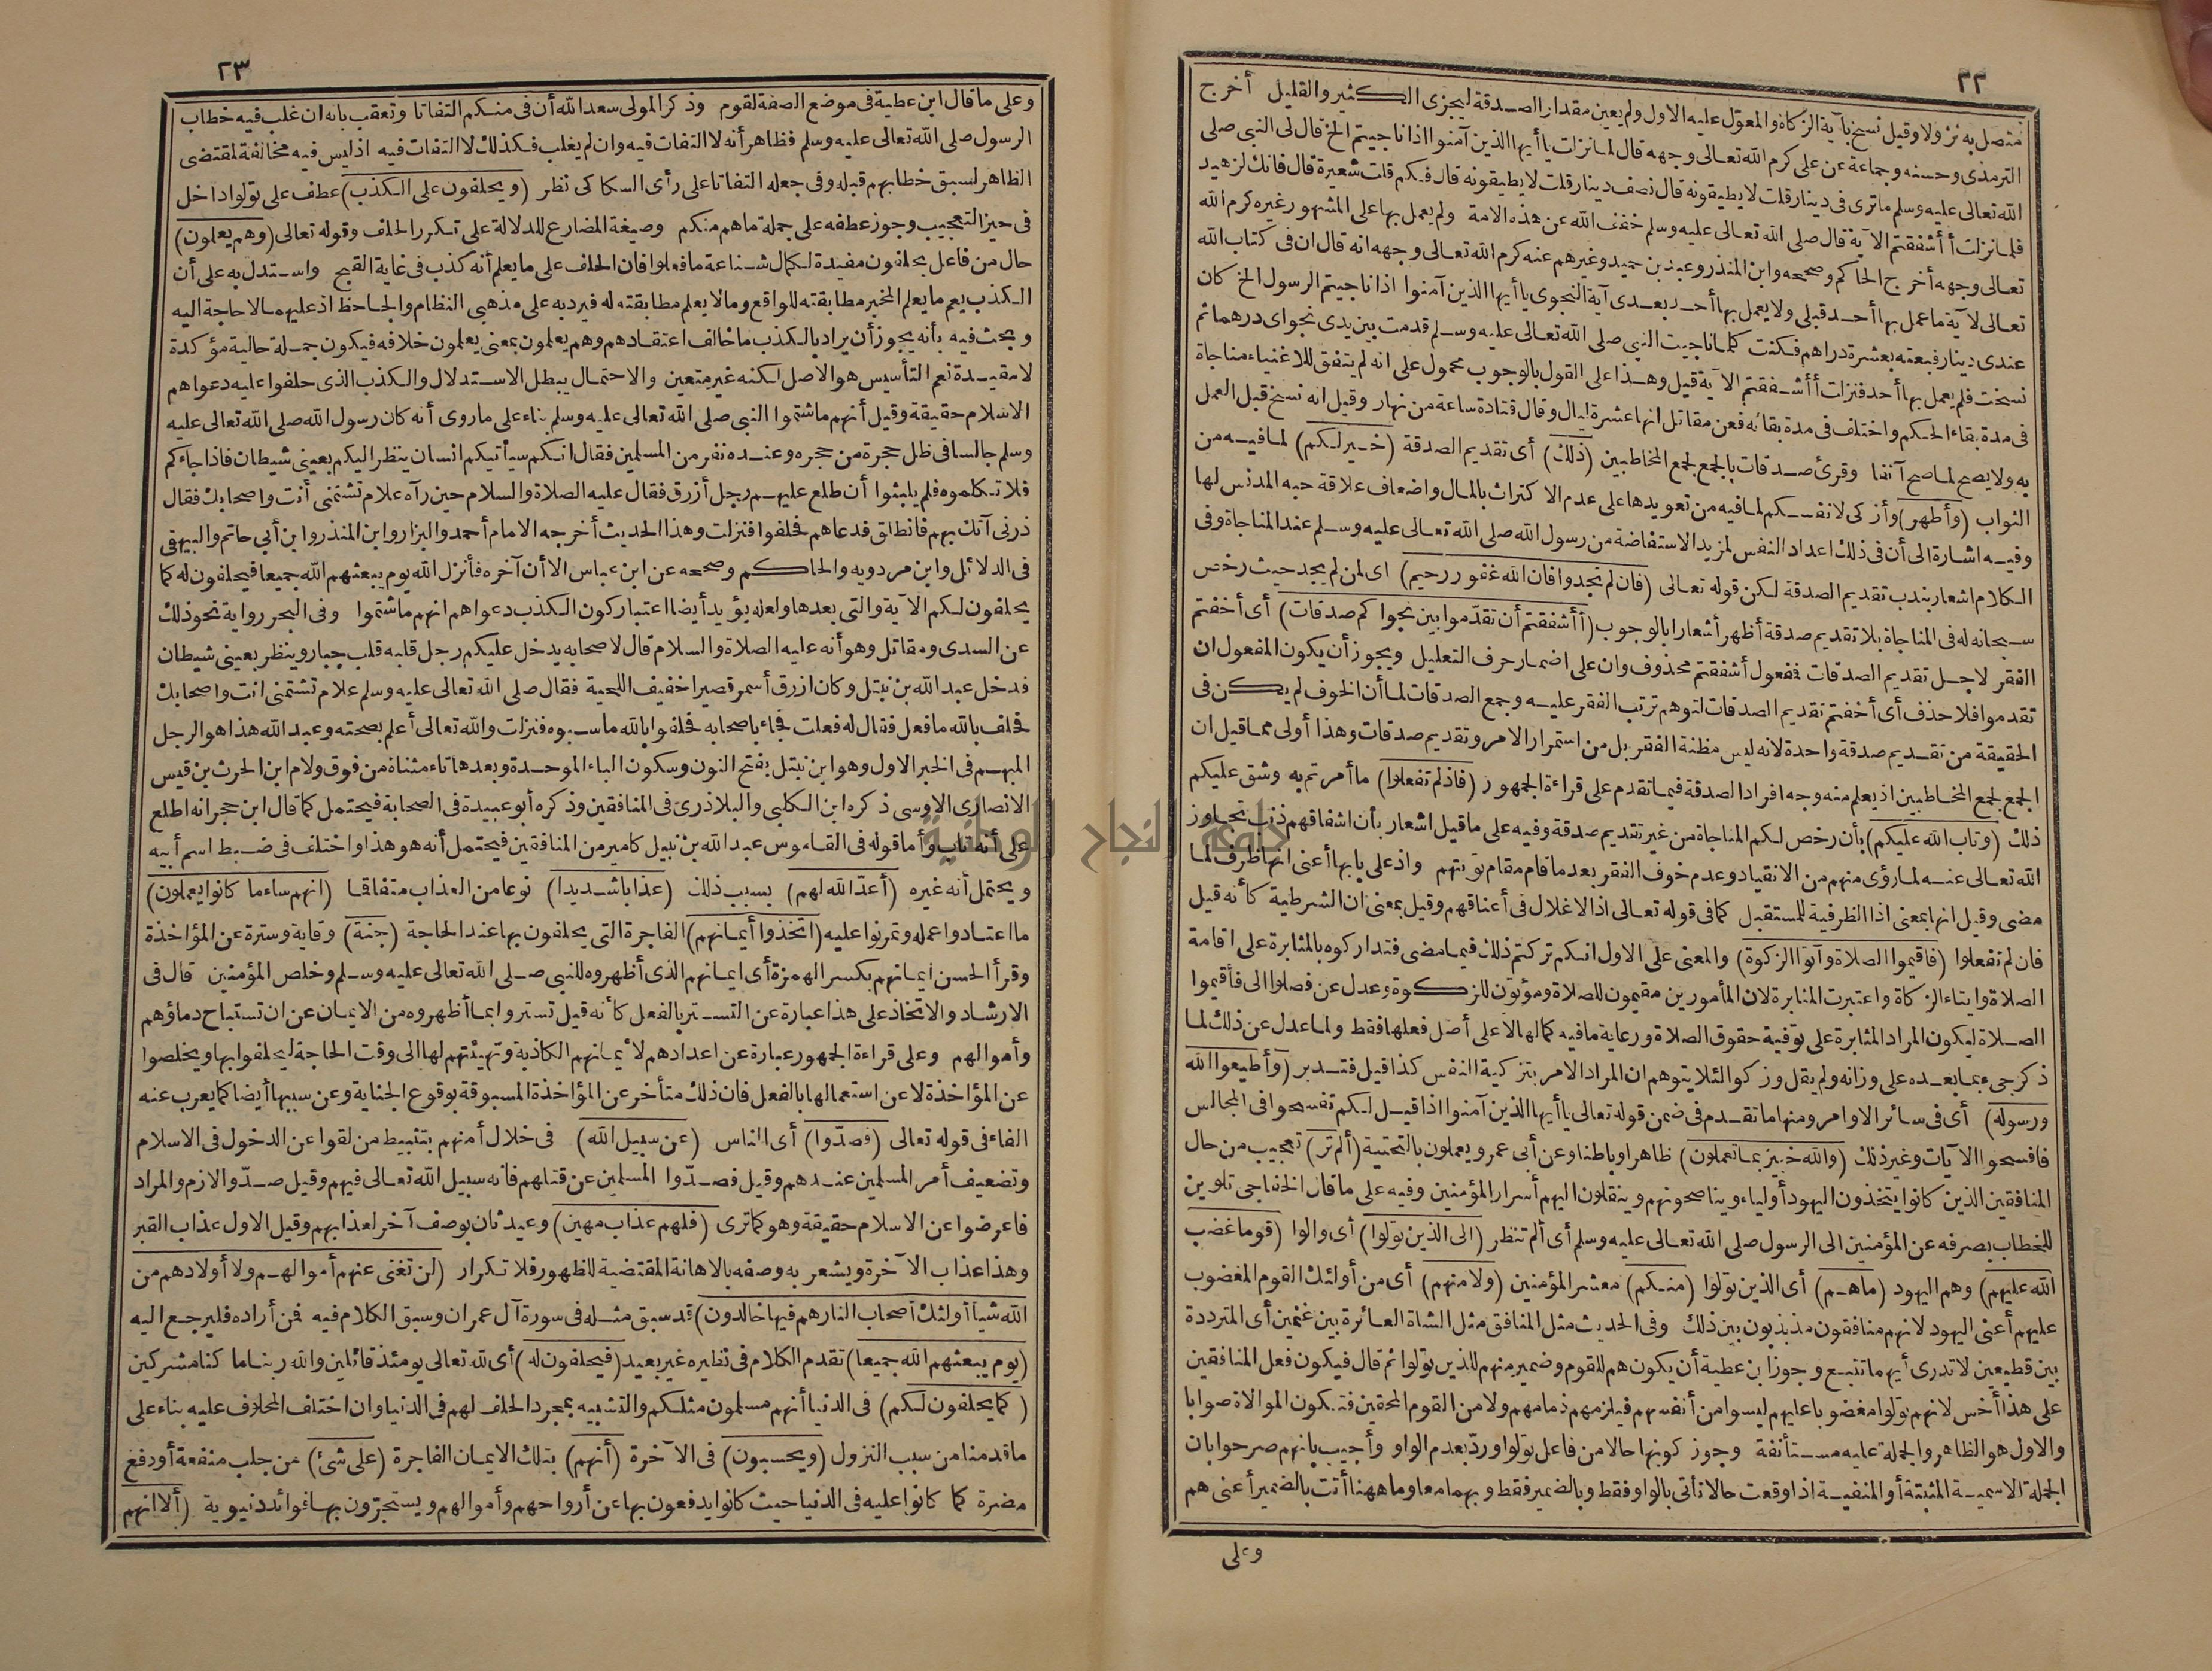 ٢٢
متصل به نزولا وقيل نسخ بآية الزكاة والمعوّل عليه الاول ولم يعين مقدار الصدقة ليجزى الكثير والقليل أخرج
الترمذى وحسنه وجماعة عن على كرم الله تعالى وجهه قال لما نزلت يا أيها الذين آمنوا اذا ناجيتم الخ قال لى النبى صلى
الله تعالى عليه وسلم ما ترى فى دينار قلت لا يطيقونه قال نصف دينار قلت لا يطيقونه قال فكم قلت شعيرة قال فانك لزهيد
فلما نزلت أأشفقتم الآية قال صلى الله تعالى عليه وسلم خفف الله عن هذه الامة ولم يعمل بها على المشهور غيره كرم الله
تعالى وجهه أخرج الحاكم وصححه وابن المنذر وعبد بن حميد وغيرهم عنه كرم الله تعالى وجهه انه قال ان فى كتاب الله
تعالى لآية ما عمل بها أحد قبلى ولا يعمل بها أحد بعدى آية النجوى يا أيها الذين آمنوا اذا ناجيتم الرسول الخ كان
عندى دينار فبعته بعشرة دراهم فكنت كلما ناجيت النبى صلى الله تعالى عليه وسلم قدمت بين يدى نجواى درهما ثم
نسخت فلم يعمل بها أحد فنزلت أأشفقتم الآية قيل وهذا على القول بالوجوب محمول على انه لم يتفق للاغنياء مناجاة
فى مدة بقاء الحكم واختلف فى مدة بقائه فعن مقاتل انها عشرة ليال وقال قتادة ساعة من نهار وقيل انه نسخ قبل العمل
به ولا يصح لما صح آنفا وقرئ صدقات بالجمع لجمع المخاطبين (ذلك) أى تقديم الصدقة (خير لكم) لما فيه من
الثواب (وأطهر) وأزكى لانفسكم لما فيه من تعويدها على عدم الاكتراث بالمال واضعاف علاقة حبه المدنس لها
وفيه اشارة الى أن فى ذلك اعداد النفس لمزيد الاستفاضة من رسول الله صلى الله تعالى عليه وسلم عند المناجاة وفى
الكلام اشعار بندب تقديم الصدقة لكن قوله تعالى (فان لم تجدوا فان الله غفور رحيم) اى لمن لم يجد حيث رخص
سبحانه له فى المناجاة بلا تقديم صدقة أظهر أشعارا بالوجوب (أأشفقتم أن تقدّموا بين نجواكم صدقات) أى أخفتم
الفقر لاجل تقديم الصدقات فمفعول أشفقتم محذوف وان على اضمار حرف التعليل ويجوز أن يكون المفعول ان
تقدموا فلا حذف أى أخفتم تقديم الصدقات لتوهم ترتب الفقر عليه وجمع الصدقات لما أن الخوف لم يكن فى
الحقيقة من تقديم صدقة واحدة لانه ليس مظنة الفقر بل من استمرار الامر وتقديم صدقات وهذا أولى مما قيل ان
الجمع لجمع المخاطبين اذ يعلم منه وجه افراد الصدقة فيما تقدم على قراءة الجمهور (فاذ لم تفعلوا) ما أمرتم به وشق عليكم
ذلك (وتاب الله عليكم) بأن رخص لكم المناجاة من غير تقديم صدقة وفيه على ما قيل اشعار بأن اشفاقهم ذنب تجاوز
الله تعالى عنه لما رؤى منهم من الانقياد وعدم خوف الفقر بعد ما قام مقام توبتهم واذ على بابها أعنى انها ظرف لما
مضى وقيل انها بمعنى اذا الظرفية للمستقبل كما فى قوله تعالى اذ الاغلال فى أعناقهم وقيل بمعنى ان الشرطية كأنه قيل
فان لم تفعلوا (فاقيموا الصلاة وآتوا الزكوة) والمعنى على الاول انكم تركتم ذلك فيما مضى فتداركوه بالمثابرة على اقامة
الصلاة وايتاء الزكاة واعتبرت المثابرة لان المأمورين مقيمون للصلاة ومؤتون للزكوة وعدل عن فصلوا الى فأقيموا
الصلاة ليكون المراد المثابرة على توفية حقوق الصلاة ورعاية ما فيه كمالها لا على أصل فعلها فقط ولما عدل عن ذلك لما
ذكر جىء بما بعده على وزانه ولم يقل وزكوا لئلا يتوهم ان المراد الامر بتزكية النفس كذا قيل فتدبر (وأطيعوا الله
ورسوله) أى فى سائر الاوامر ومنها ما تقدم فى ضمن قوله تعالى يا أيها الذين آمنوا اذا قيل لكم تفسحوا فى المجالس
فافسحوا الآيات وغير ذلك (والله خبير بما تعملون) ظاهرا وباطنا وعن أبى عمرو يعملون بالتحتية (ألم تر) تعجيب من حال
المنافقين الذين كانوا يتخذون اليهود أولياء ويناصحونهم وينقلون اليهم أسرار المؤمنين وفيه على ما قال الخفاجى تلوين
للخطاب بصرفه عن المؤمنين الى الرسول صلى الله تعالى عليه وسلم أى ألم تنظر (الى الذين تولوا) أى والوا (قوما غضب
الله عليهم) وهم اليهود (ما هم) أى الذين تولوا (منكم) معشر المؤمنين (ولا منهم) أى من أولئك القوم المغضوب
عليهم أعنى اليهود لانهم منافقون مذبذبون بين ذلك وفى الحديث مثل المنافق مثل الشاة العائرة بين غنمين أى المترددة
بين قطيعين لا تدرى أيهما تتبع وجوز ابن عطية أن يكون هم للقوم وضمير منهم للذين تولوا ثم قال فيكون فعل المنافقين
على هذا أخس لانهم تولوا مغضوبا عليهم ليسوا من أنفسهم فيلزمهم ذمامهم ولا من القوم المحقين فتكون الموالاة صوابا
والاول هو الظاهر والجملة عليه مستأنفة وجوز كونها حالا من فاعل تولوا وردّ بعدم الواو وأجيب بانهم صرحوا بان
الجملة الاسمية المثبتة أو المنفية اذا وقعت حالا تأتى بالواو فقط وبالضمير فقط وبهما معا وما ههنا أتت بالضمير أعنى هم
وعلى
٢٣
وعلى ما قال ابن عطية فى موضع الصفة لقوم وذكر المولى سعد الله أن فى منكم التفاتا وتعقب بانه ان غلب فيه خطاب
الرسول صلى الله تعالى عليه وسلم فظاهر أنه لا التفات فيه وان لم يغلب فكذلك لا التفات فيه اذ ليس فيه مخالفة لمقتضى
الظاهر لسبق خطابهم قبله وفى جعله التفاتا على رأى السكاكى نظر (ويحلفون على الكذب) عطف على تولوا داخل
فى حيز التعجيب وجوز عطفه على جملة ما هم منكم وصيغة المضارع للدلالة على تكرر الحلف وقوله تعالى (وهم يعلمون)
حال من فاعل يحلفون مفيدة لكمال شناعة ما فعلوا فان الحلف على ما يعلم أنه كذب فى غاية القبح واستدل به على أن
الكذب يعم ما يعلم المخبر مطابقته للواقع وما لا يعلم مطابقته له فيرد به على مذهبى النظام والجاحظ اذ عليهما لا حاجة اليه
وبحث فيه بأنه يجوز أن يراد بالكذب ما خالف اعتقادهم وهم يعلمون بمعنى يعلمون خلافه فيكون جملة حالية مؤكدة
لا مقيدة نعم التأسيس هو الاصل لكنه غير متعين والاحتمال يبطل الاستدلال والكذب الذى حلفوا عليه دعواهم
الاسلام حقيقة وقيل أنهم ما شتموا النبى صلى الله تعالى عليه وسلم بناء على ما روى أنه كان رسول الله صلى الله تعالى عليه
وسلم جالسا فى ظل حجرة من حجره وعنده نفر من المسلمين فقال انكم سيأتيكم انسان ينظر اليكم بعينى شيطان فاذا جاءكم
فلا تكلموه فلم يلبثوا أن طلع عليهم رجل أزرق فقال عليه الصلاة والسلام حين رآه علام تشتمنى أنت واصحابك فقال
ذرنى آتك بهم فانطلق فدعاهم فحلفوا فنزلت وهذا الحديث أخرجه الامام أحمد والبزار وابن المنذر وابن أبى حاتم والبيهقى
فى الدلائل وابن مردويه والحاكم وصححه عن ابن عباس الا أن آخره فأنزل الله يوم يبعثهم الله جميعا فيحلفون له كما
يحلفون لكم الآية والتى بعدها ولعله يؤيد أيضا اعتبار كون الكذب دعواهم انهم ما شتموا وفى البحر رواية نحو ذلك
عن السدى ومقاتل وهو أنه عليه الصلاة والسلام قال لاصحابه يدخل عليكم رجل قلبه قلب جبار وينظر بعينى شيطان
فدخل عبد الله بن نبتل وكان ازرق أسمر قصيرا خفيف اللحية فقال صلى الله تعالى عليه وسلم علام تشتمنى انت واصحابك
فحلف بالله ما فعل فقال له فعلت فجاء باصحابه فحلفوا بالله ما سبوه فنزلت والله تعالى أعلم بصحته وعبد الله هذا هو الرجل
المبهم فى الخبر الاول وهو ابن نبتل بفتح النون وسكون الباء الموحدة وبعدها تاء مثناة من فوق ولام ابن الحرث بن قيس
الانصارى الاوسى ذكره ابن الكلبى والبلاذرى فى المنافقين وذكره أبو عبيدة فى الصحابة فيحتمل كما قال ابن حجر انه اطلع
على أنه تاب وأما قوله فى القاموس عبد الله بن نبيل كامير من المنافقين فيحتمل أنه هو هذا واختلف فى ضبط اسم أبيه
ويحتمل أنه غيره (أعدّ الله لهم) بسبب ذلك (عذابا شديدا) نوعا من العذاب متفاقما (انهم ساء ما كانوا يعملون)
ما اعتادوا عمله وتمرنوا عليه (اتخذوا أيمانهم) الفاجرة التى يحلفون بها عند الحاجة (جنة) وقاية وسترة عن المؤاخذة
وقرأ الحسن ايمانهم بكسر الهمزة أى ايمانهم الذى أظهروه للنبى صلى الله تعالى عليه وسلم وخلص المؤمنين قال فى
الارشاد والاتخاذ على هذا عبارة عن التستر بالفعل كأنه قيل تستروا بما أظهروه من الايمان عن ان تستباح دماؤهم
وأموالهم وعلى قراءة الجمهور عبارة عن اعدادهم لأيمانهم الكاذبة وتهيئتهم لها الى وقت الحاجة ليحلفوا بها ويخلصوا
عن المؤاخذة لا عن استعمالها بالفعل فان ذلك متأخر عن المؤاخذة المسبوقة بوقوع الجناية وعن سببها أيضا كما يعرب عنه
الفاء فى قوله تعالى (فصدّوا) أى الناس (عن سبيل الله) فى خلال أمنهم بتثبيط من لقوا عن الدخول فى الاسلام
وتضعيف أمر المسلمين عندهم وقيل فصدّوا المسلمين عن قتلهم فانه سبيل الله تعالى فيهم وقيل صدّوا لازم والمراد
فاعرضوا عن الاسلام حقيقة وهو كما ترى (فلهم عذاب مهين) وعيد ثان بوصف آخر لعذابهم وقيل الاول عذاب القبر
وهذا عذاب الآخرة ويشعر به وصفه بالاهانة المقتضية للظهور فلا تكرار (لن تغنى عنهم أموالهم ولا أولادهم من
الله شيأ أولئك أصحاب النار هم فيها خالدون) قد سبق مثله فى سورة آل عمران وسبق الكلام فيه فمن أراده فليرجع اليه
(يوم يبعثهم الله جميعا) تقدم الكلام فى نظيره غير بعيد (فيحلفون له) أى لله تعالى يومئذ قائلين والله ربنا ما كنا مشركين
(كما يحلفون لكم) فى الدنيا أنهم مسلمون مثلكم والتشبيه بمجرد الحلف لهم فى الدنيا وان اختلف المحلوف عليه بناء على
ما قدمنا من سبب النزول (ويحسبون) فى الآخرة (أنهم) بتلك الايمان الفاجرة (على شئ) من جلب منفعة أو دفع
مضرة كما كانوا عليه فى الدنيا حيث كانوا يدفعون بها عن أرواحهم وأموالهم ويستجرّون بها فوائد دنيوية (ألا انهم
جامعة النجاح الوطنية